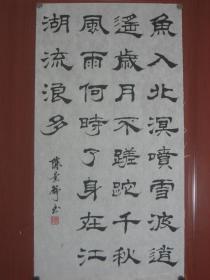 魚入北溟噴雪波逍
遙歲月不蹉跎千秋
風雨何時了身在江
湖流浪多